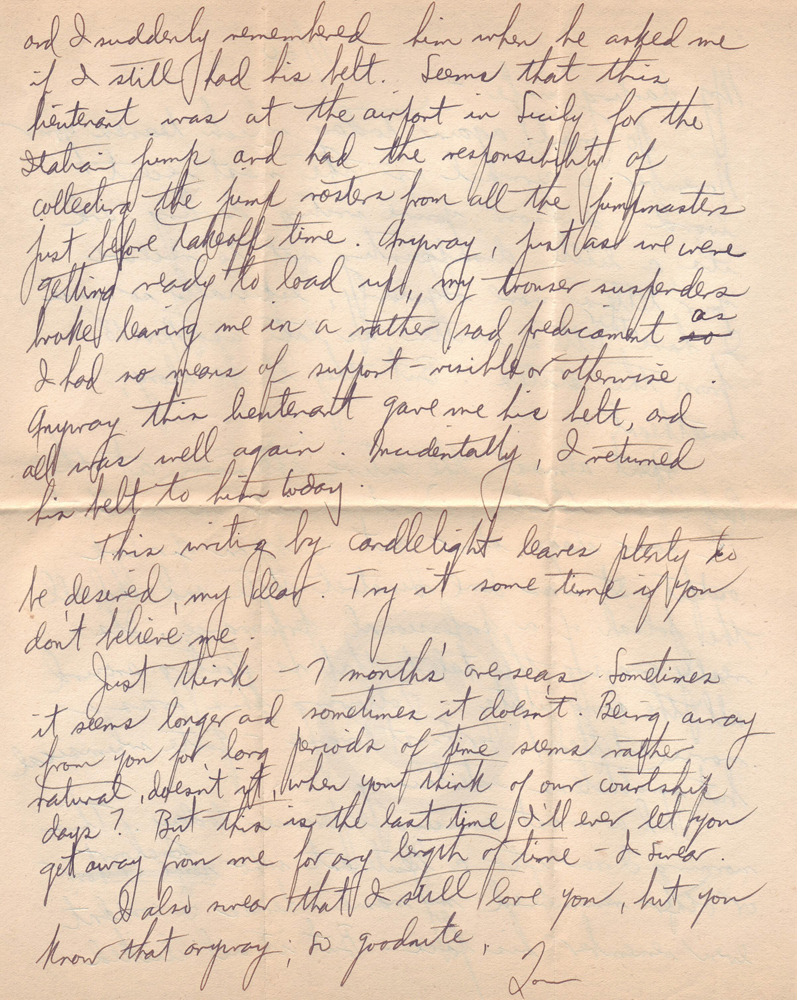 and I suddenly remembered him when he asked me
if I still had his belt. Seems that this
lieutenant was at the airport in Sicily for the
Italian jump and had the responsibility of
collecting the jump rosters from all the jumpmasters
just before takeoff time. Anyway, just as we were
getting ready to load up, my trouser suspenders
broke leaving me in a rather sad predicament as
so
I had no means of support - visible or otherwise.
Anyway this lieutenant gave me his belt, and
all was well again. Incidentally, I returned
his belt to him today.
This writing by candlelight leaves plenty to
be desired, my dear. Try it some time if you
don't believe me.
Just think - 7 months' overseas. Sometimes
it seems longer and sometimes it doesn't. Being away
from you for long periods of time seems rather
natural, doesn't it, when you think of our courtship
days? But this is the last time I'll ever let you
get away from me for any length of time - I swear.
I also swear that I still love you, but you
know that anyway; so goodnite,